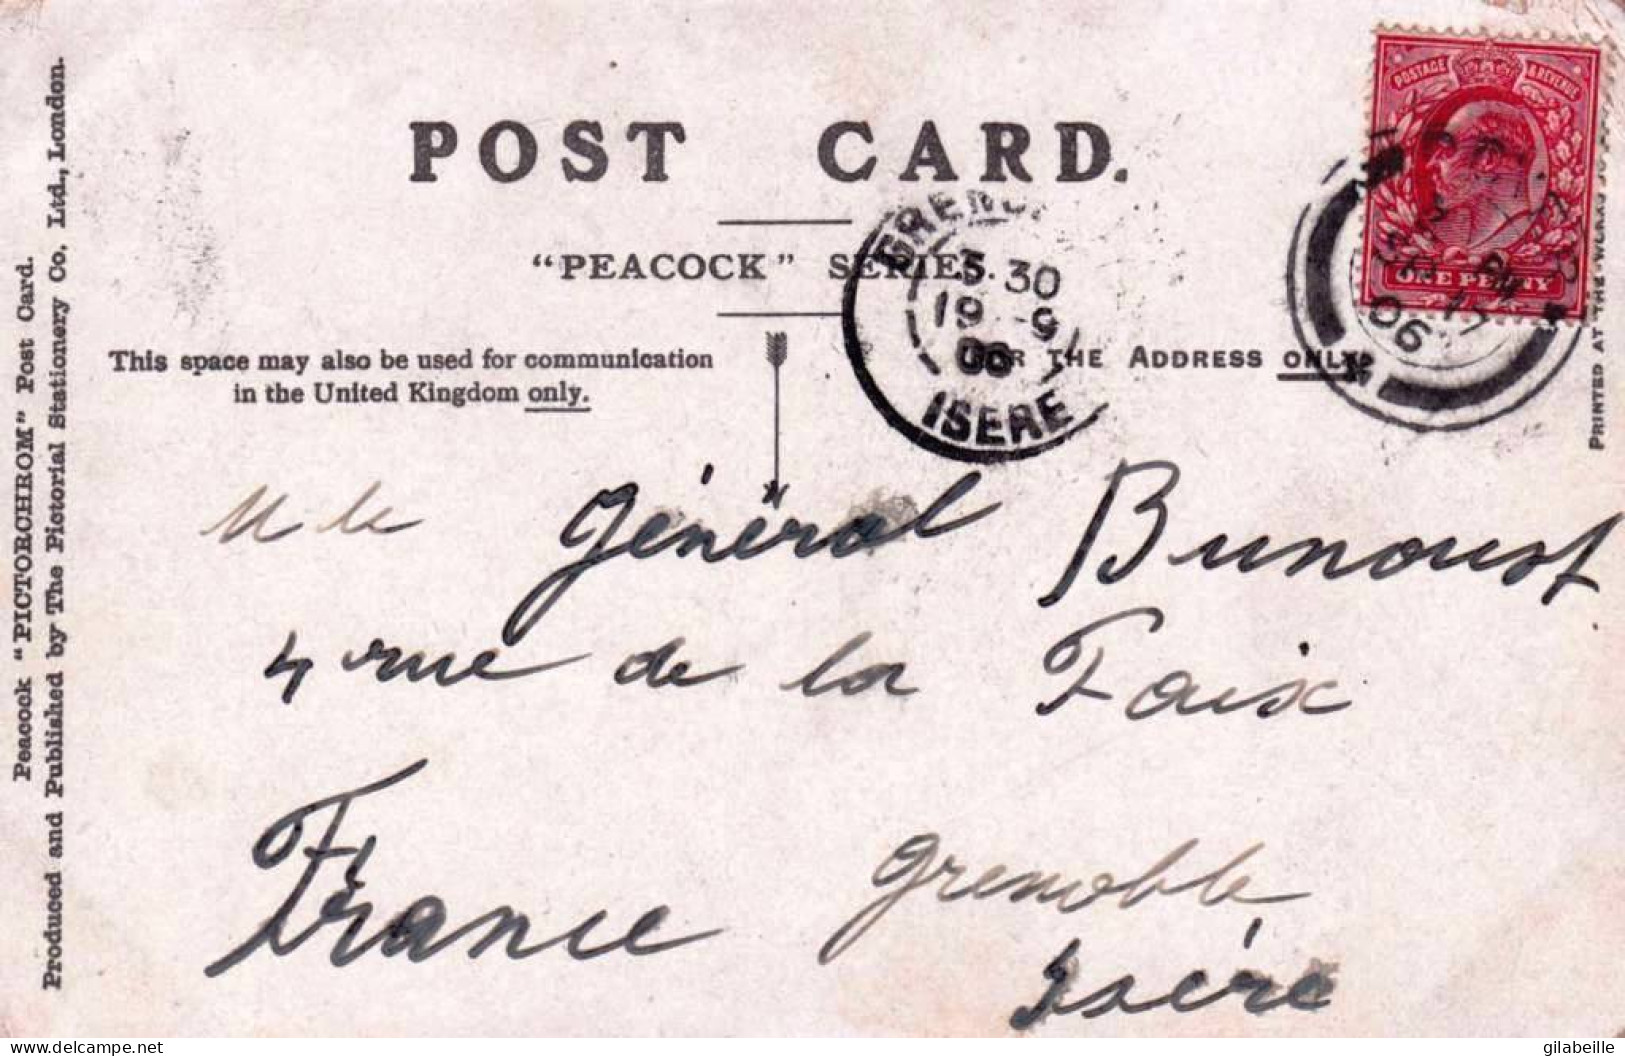 POST CARD.
"PEACOCK" SERIES.
This space may also be used for communication
in the United Kingdom only.
FOR THE ADDRESS ONLY.
Peacock "PICTORCHROM" Post Card.
Produced and Published by The Pictorial Stationery Co. Ltd., London.
PRINTED AT THE WERKS
POSTAGE & REVENUE
ONE PENNY
5 PM
SP 17
06
3 30
19 9
06
ISERE
Général Bunoust
4 rue de la Paix
France
Grenoble
Isère
delcampe.net
gilabeille